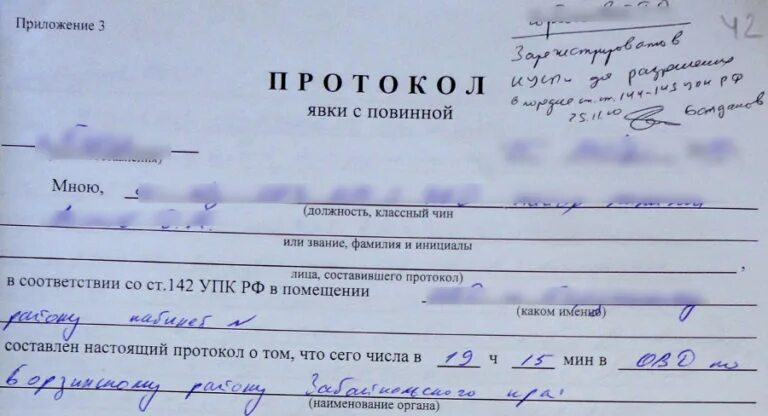 Приложение 3
42
Зарегистрировать в
КУСП и до разрешения
в порядке ст.ст. 144-145 УПК РФ
25.11.10 Богданов
ПРОТОКОЛ
явки с повинной
Мною,
(должность, классный чин
или звание, фамилия и инициалы
,
лица, составившего протокол)
в соответствии со ст.142 УПК РФ в помещении
(каком именно)
району кабинет №
составлен настоящий протокол о том, что сего числа в 19 ч 15 мин в ОВД по
Борзинскому району Забайкальского края
(наименование органа)